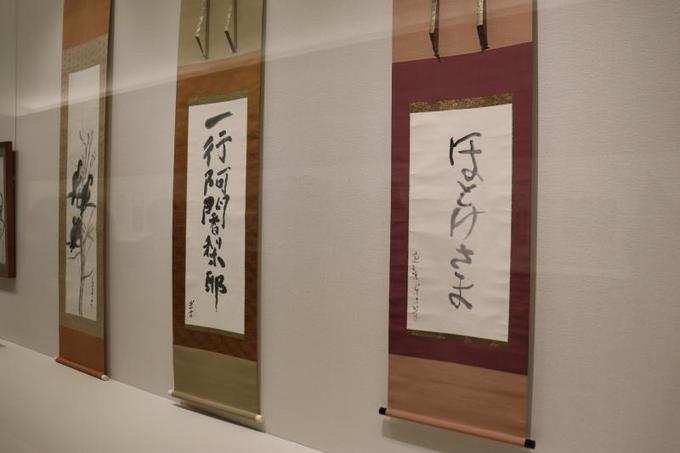 一行阿闍梨耶
ほとけさま